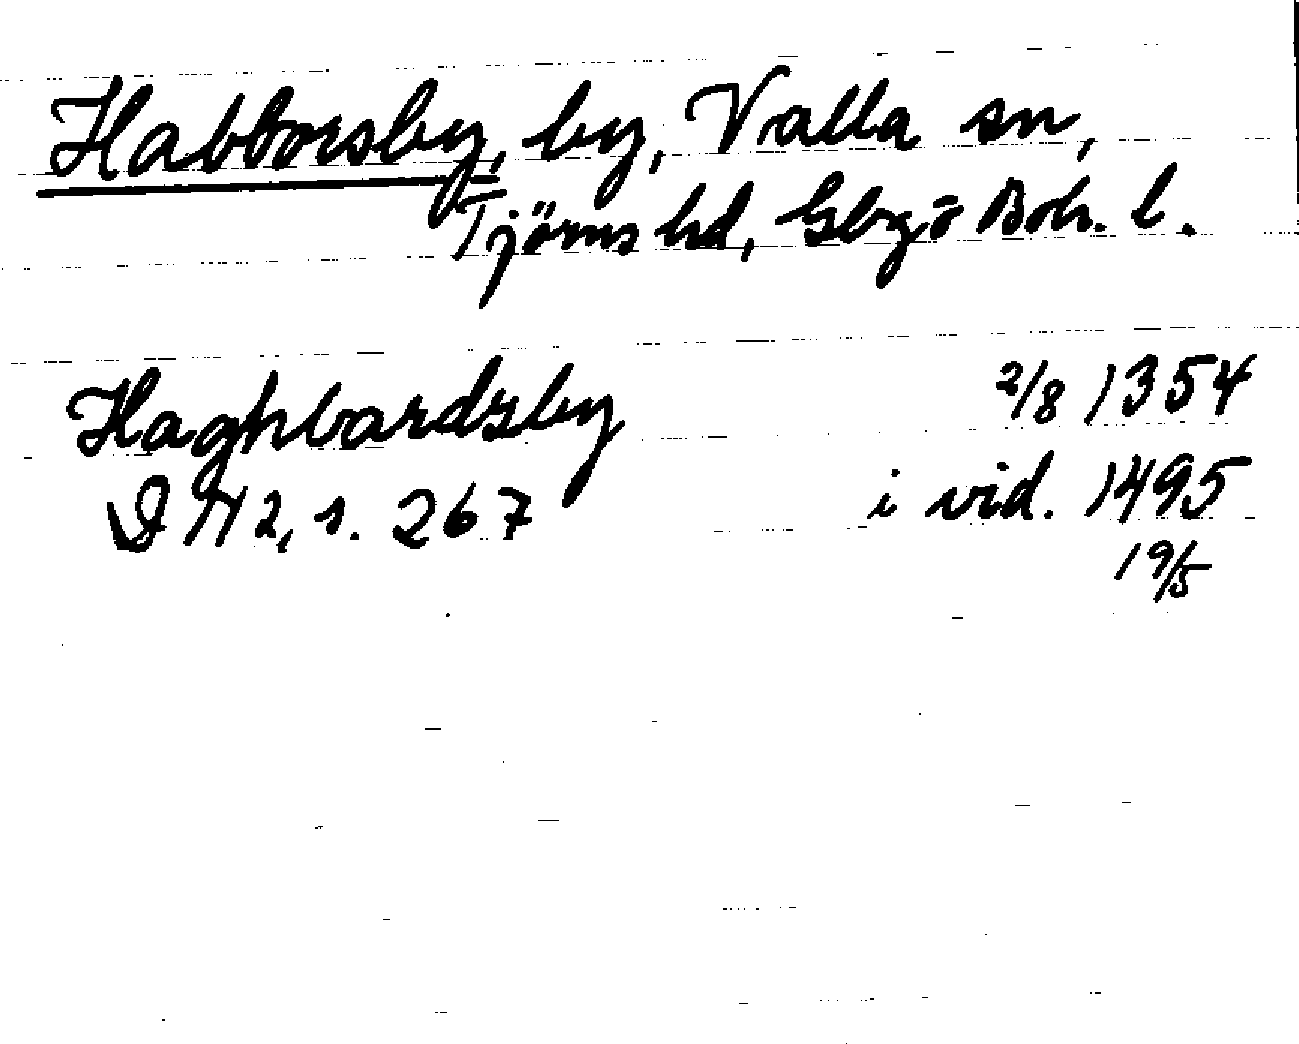 Habborsby, by, Valla sn,
Tjörns hd, Gbg o Boh. l.
Haghbardzby 2/8 1354
DN 2, s. 267 i vid. 1495
19/5